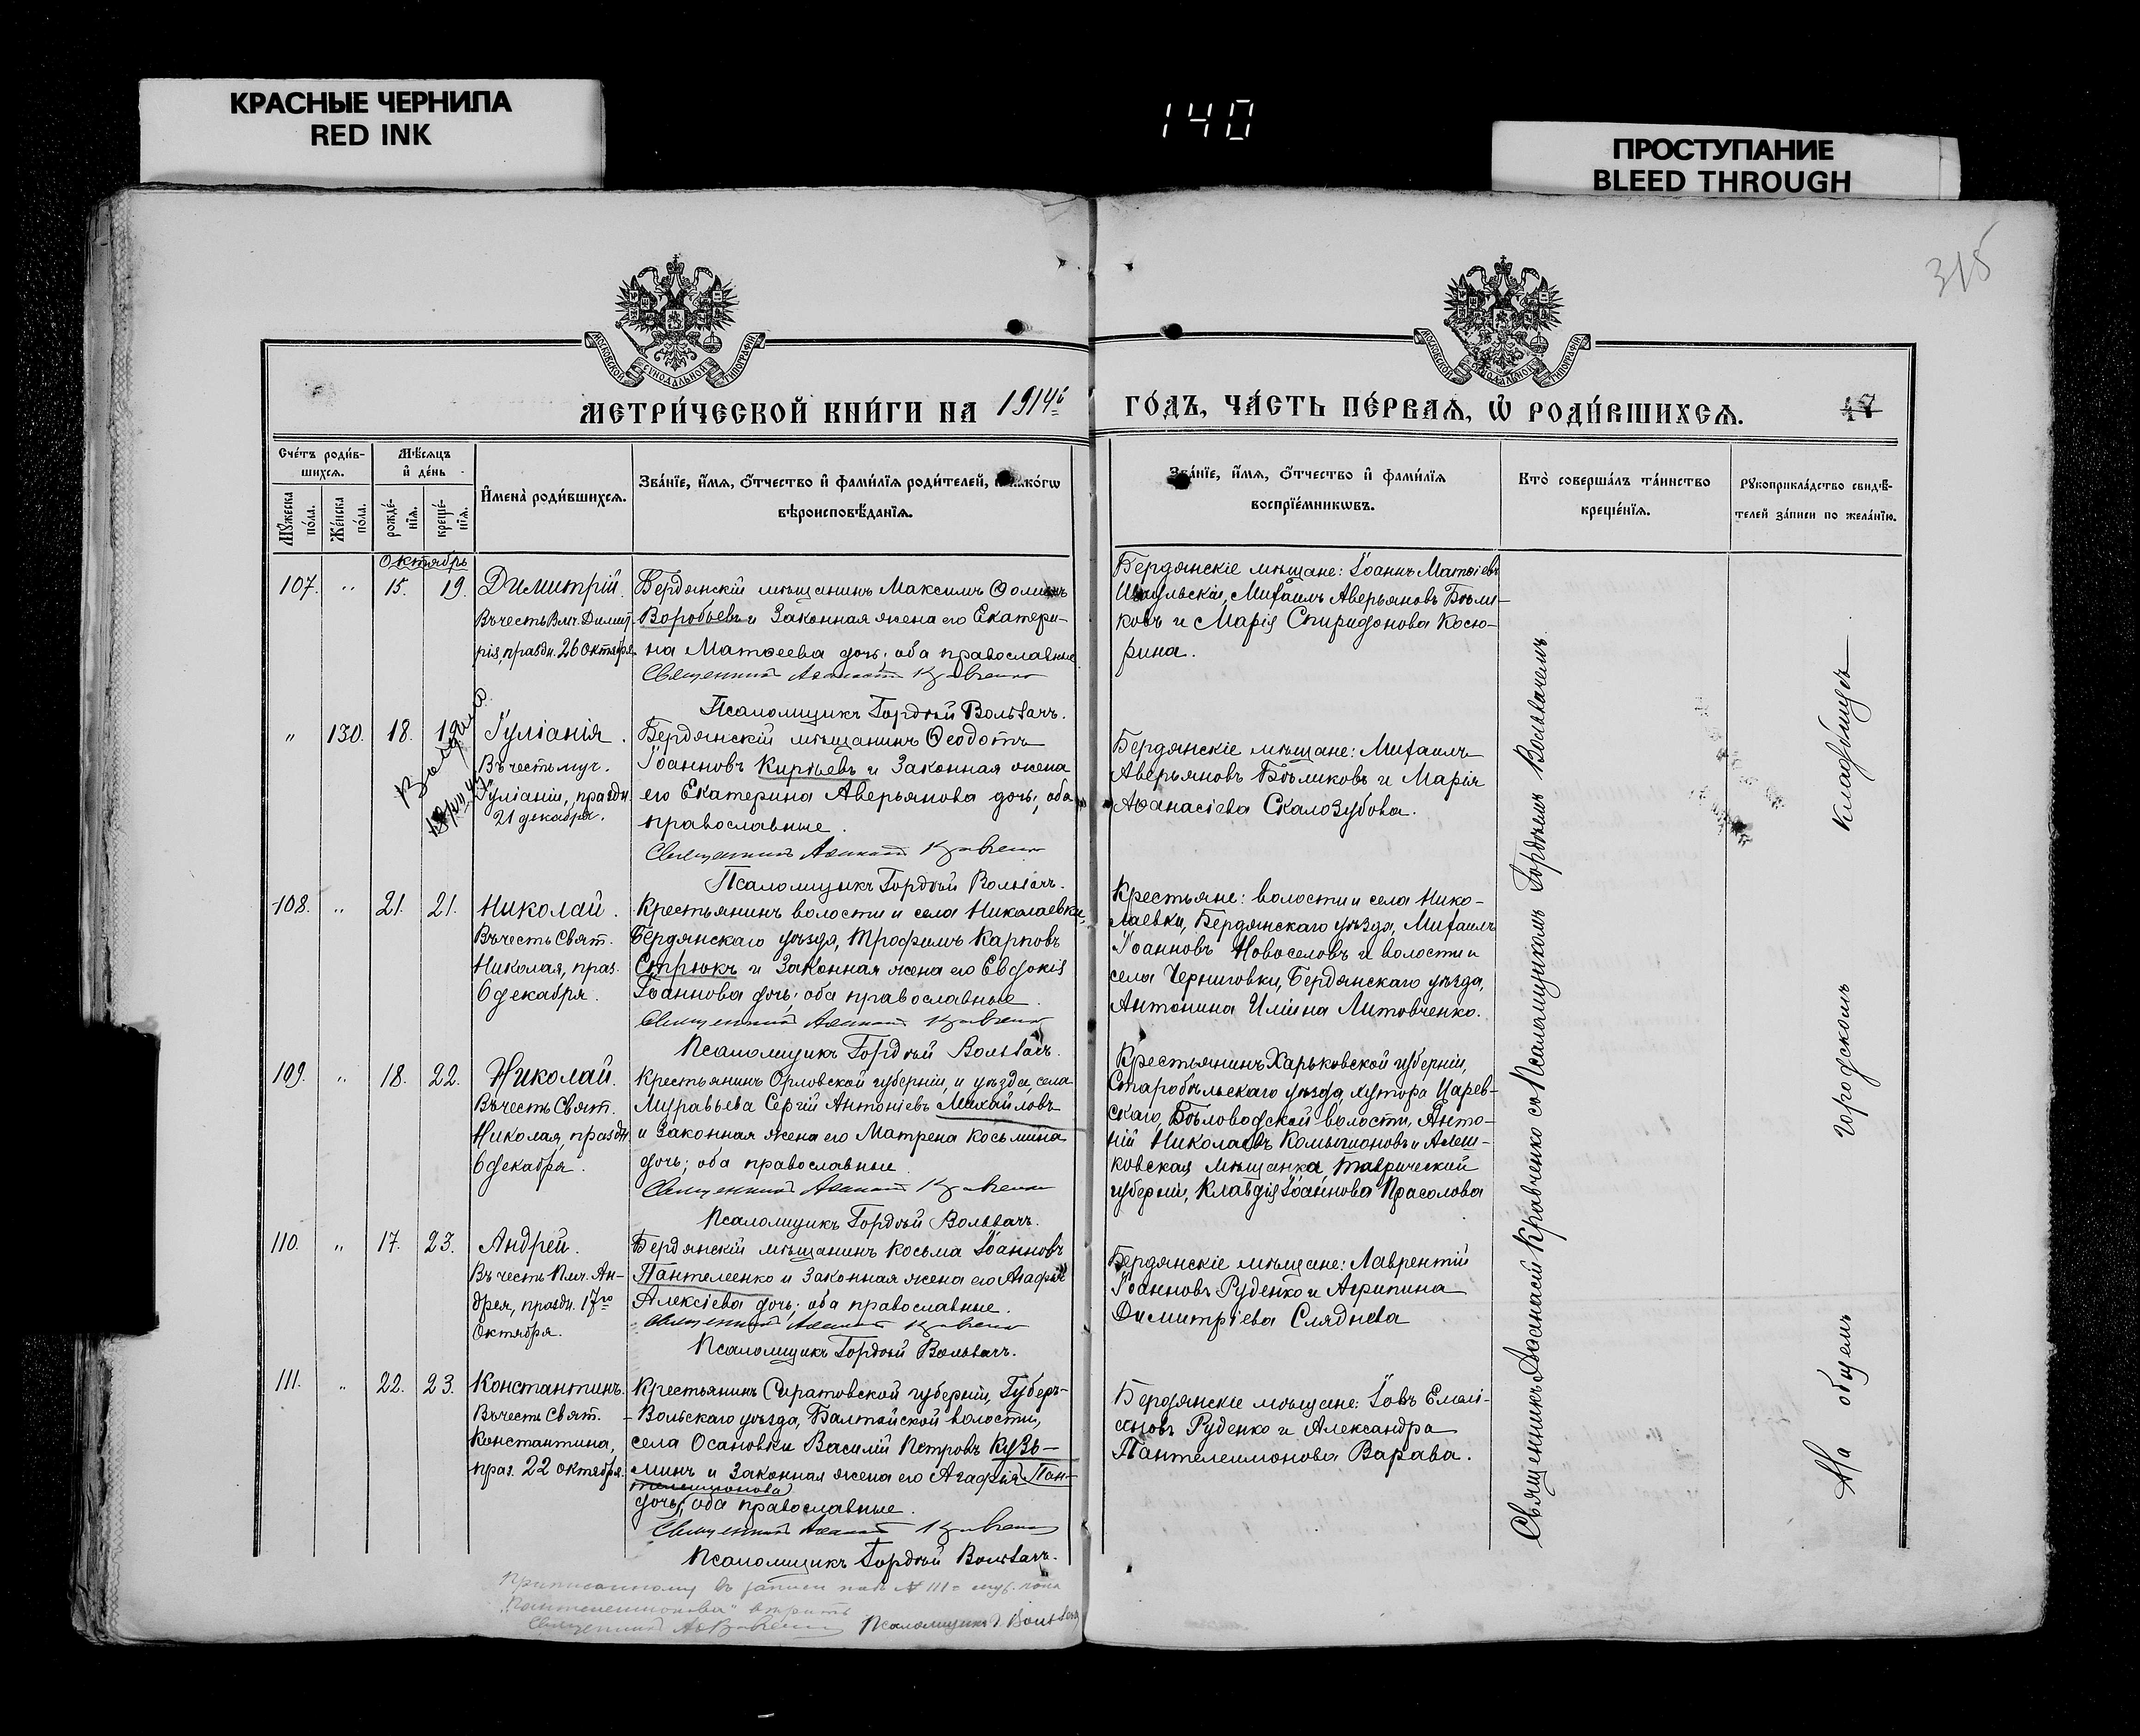 КРАСНЫЕ ЧЕРНИЛА
RED INK
140
ПРОСТУПАНИЕ
BLEED THROUGH
315
МОСКОВСКОЙ СѴНОДАЛЬНОЙ ТИПОГРАФІИ
МОСКОВСКОЙ СѴНОДАЛЬНОЙ ТИПОГРАФІИ
МЕТРИ́ЧЕСКОЙ КНИ́ГИ НА 1914й
ГО́ДЪ, ЧА́СТЬ ПЕ́РВАЯ, Ѡ҆ РОДИ́ВШИХСЯ.
47
Сче́тъ роди́в-
шихся.
Мѣ́сяцъ
и҆ де́нь
Мꙋ́жеска по́ла.
Же́нска по́ла.
рожде́-
нїя.
креще́-
нїя.
И҆мена̀ роди́вшихся.
Зва́нїе, и҆́мя, ѻ҆́тчество и҆ фами́лїя роди́телей, и҆ како́гѡ
вѣроисповѣ́данїя.
Зва́нїе, и҆́мя, ѻ҆́тчество и҆ фами́лїя
воспрїе́мникѡвъ.
Кто̀ соверша́лъ та́инство
креще́нїя.
Рꙋкоприкла́дство свидѣ́-
телей за́писи по жела́нїю.
Октябрь
107. " 15. 19. Димитрій.
Въ честь Влмч. Димит-
рія, праздн. 26 Октября.
Бердянскій мѣщанинъ Максимъ Ѳоминъ
Воробьевъ и законная жена его Екатери-
на Матѳеева дочь; оба православные.
Священникъ Аѳанасій Кравченко
Псаломщикъ Гордѣй Вольвачъ.
Бердянскіе мѣщане: Іоаннъ Матѳіевъ
Михаилъ Аверьяновъ Бѣли-
ковъ и Марія Спиридонова Косю-
рина.
" 130. 18. 19. Іуліанія.
Въ честь муч.
Іуліаніи, праздн.
21 декабря.
Бердянскій мѣщанинъ Ѳеодотъ
Іоанновъ Кирѣевъ и законная жена
его Екатерина Аверьянова дочь; оба
православные.
Священникъ Аѳанасій Кравченко
Псаломщикъ Гордѣй Вольвачъ.
Бердянскіе мѣщане: Михаилъ
Аверьяновъ Бѣликовъ и Марія
Аѳанасіева Скалозубова.
108. " 21. 21. Николай.
Въ честь Свят.
Николая, праз.
6 декабря.
Крестьянинъ волости и села Николаевки,
Бердянскаго уѣзда, Трофимъ Карповъ
Стрюкъ и законная жена его Евдокія
Іоаннова дочь; оба православные.
Священникъ Аѳанасій Кравченко
Псаломщикъ Гордѣй Вольвачъ.
Крестьяне: волости и села Нико-
лаевки, Бердянскаго уѣзда, Михаилъ
Іоанновъ Новоселовъ и волости и
села Черниговки, Бердянскаго уѣзда,
Антонина Иліина Литовченко.
109. " 18. 22. Николай.
Въ честь Свят.
Николая, праздн.
6 декабря.
Крестьянинъ Орловской губерніи, и уѣзда, села
Муравьева Сергій Антоніевъ Михайловъ
и законная жена его Матрена Косьмина
дочь; оба православные.
Священникъ Аѳанасій Кравченко
Псаломщикъ Гордѣй Вольвачъ.
Крестьянинъ Харьковской губерніи,
Старобѣльскаго уѣзда, хутора Царев-
скаго, Бѣловодской волости, Анто-
ній Николаевъ и Алеш-
ковская мѣщанка, Таврической
губерніи, Клавдія Іоаннова Прасолова
110. " 17. 23. Андрей.
Въ честь Пмч. Ан-
дрея, праздн. 17го
Октября.
Бердянскій мѣщанинъ Косьма Іоанновъ
Пантелеенко и законная жена его Агафія
Алексіева дочь; оба православные.
Священникъ Аѳанасій Кравченко
Псаломщикъ Гордѣй Вольвачъ.
Бердянскіе мѣщане: Лаврентій
Іоанновъ Руденко и Агрипина
Димитріева Сляднева
111. " 22. 23. Константинъ.
Въ честь Свят.
Константина,
праз. 22 октября.
Крестьянинъ Саратовской губерніи,
Вольскаго уѣзда, Балтайской волости,
села Осановки Василій Петровъ Кузь-
минъ и законная жена его Агафія Пан-
телеимонова
дочь; оба православные.
Священникъ Аѳанасій Кравченко
Псаломщикъ Гордѣй Вольвачъ.
Бердянскіе мѣщане: Іовъ Емелі-
ановъ Руденко и Александра
Пантелеимонова Варава.
Священникъ Аѳанасій Кравченко съ Псаломщикомъ Гордѣемъ Вольвачемъ.
На общемъ городскомъ кладбищѣ
Приписанному въ записи подъ № 111 муж. пола
„Пантелеимонова" вѣрить
Священникъ Ав. Кравченко Псаломщикъ Г. Вольвачъ